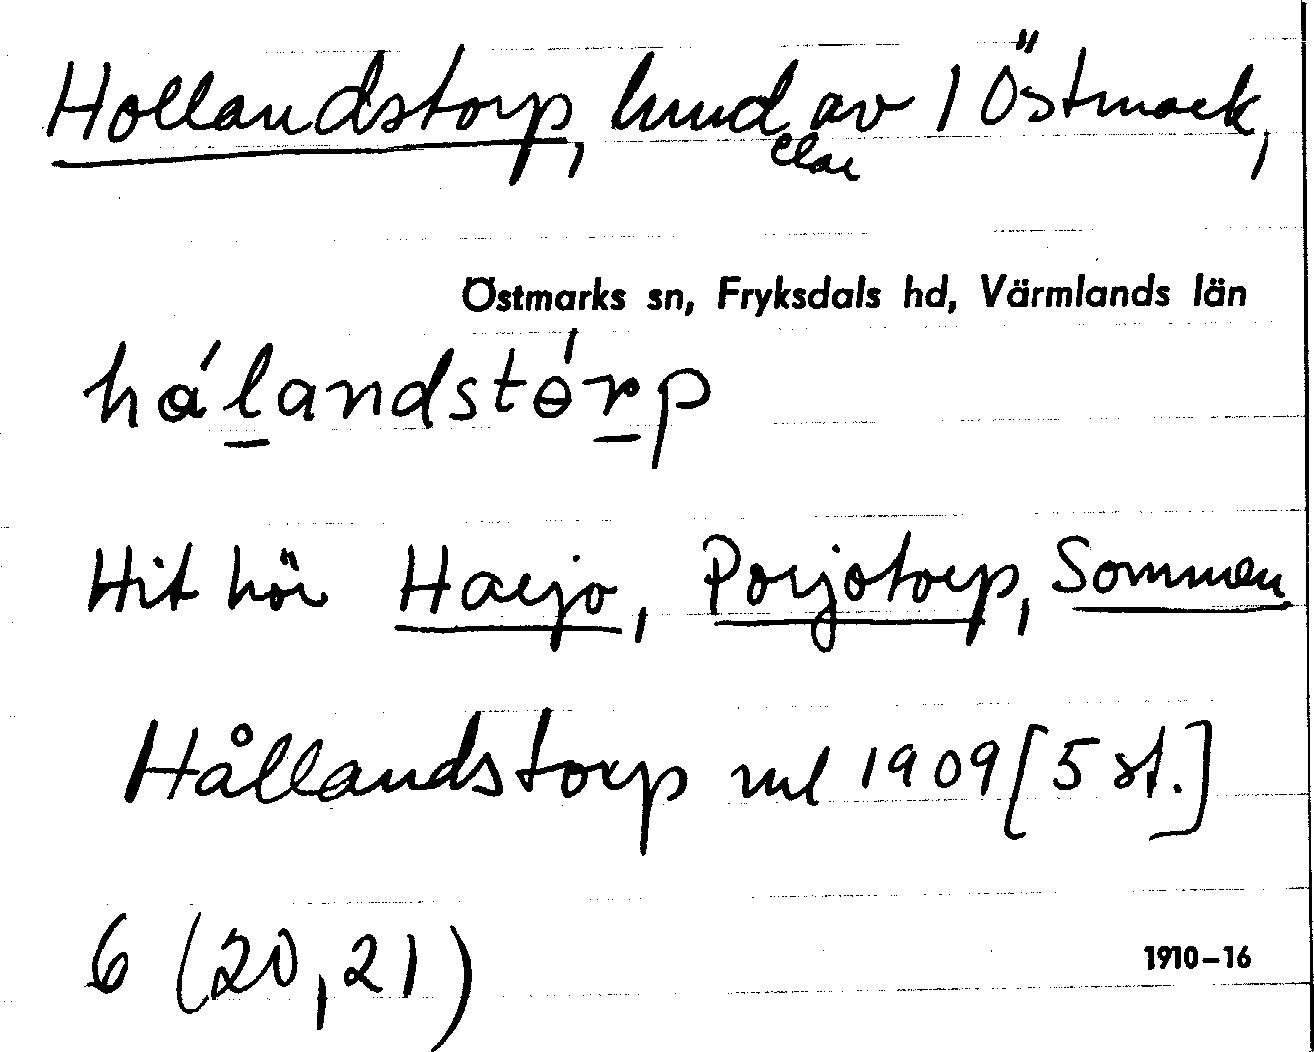 Hollandstorp, hmd av 1 Östmark,
elar
Östmarks sn, Fryksdals hd, Värmlands län
hɑ́landstɵ́rp
Hit hör Harjo, Porjotorp, Sommen
Hållandstorp ml 1909 [5 st.]
6 (20, 21)
1910-16